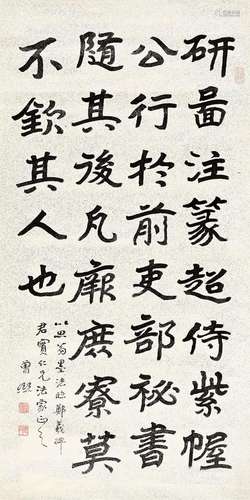 研啚注篆超侍紫幄
公行於前吏部祕書
随其後凡厥庶寮莫
不欽其人也
以翁墨法臨鄭羲碑
君實仁兄法家正之
曾熙